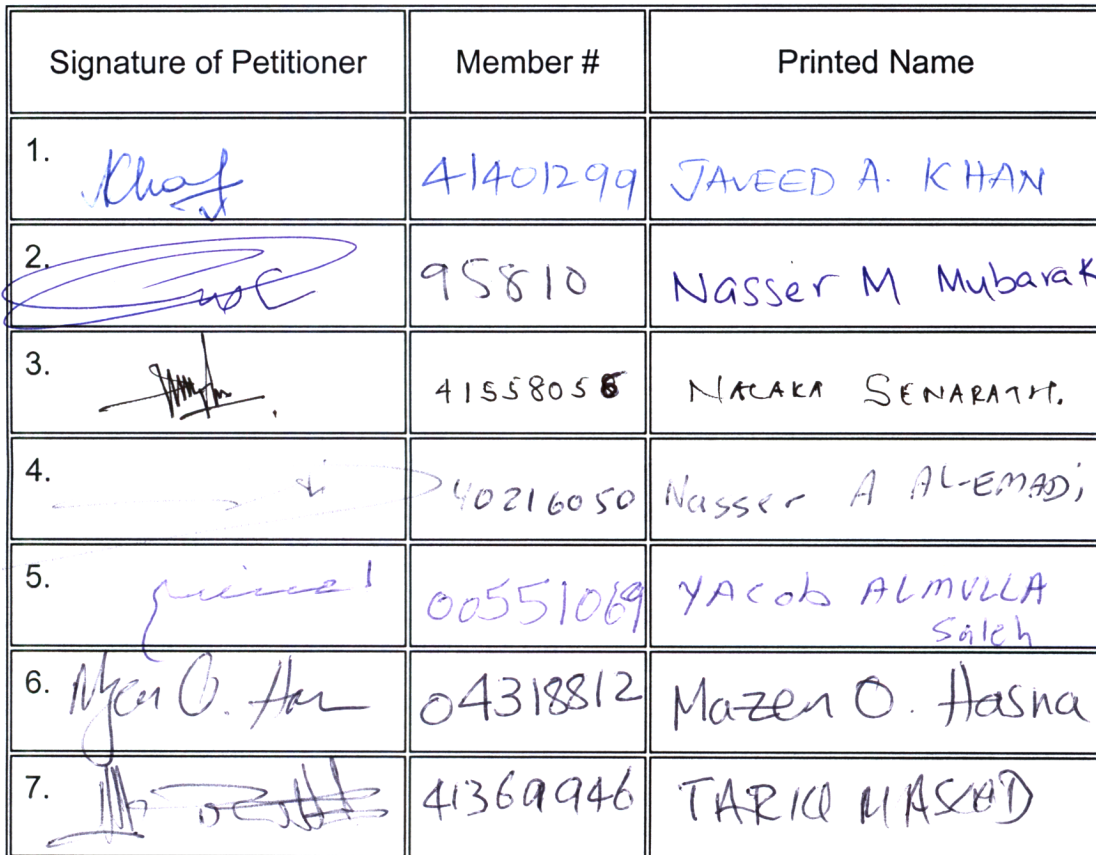 Signature of Petitioner Member # Printed Name
1. 41401299 JAVEED A. KHAN
2. 95810 Nasser M Mubarak
3. NALAKA SENARATH.
4. 40216050 Nasser A AL-EMADi
5. 00551069 YAcob ALMULLA
Saleh
6. Mazen O. Has 04318812 Mazen O. Hasna
7. 41369946 TARIQ MASUD